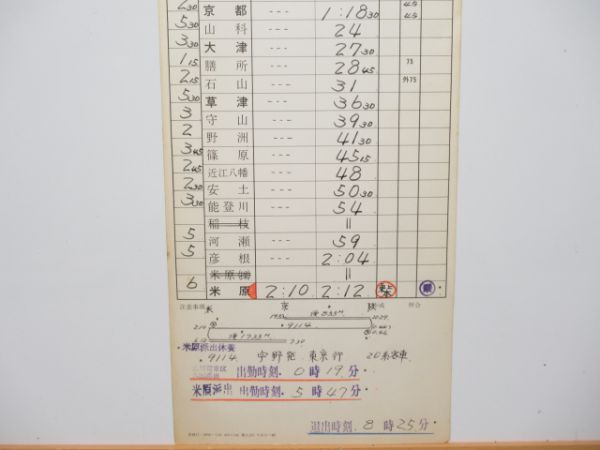 2 30
京都 1:18 30 45
5 30
山科 --- 24
3 30
大津 --- 27 30
1 15
膳所 --- 28 45 75
2 15
石山 --- 31 外75
5 30
草津 --- 36 30
3
守山 --- 39 30
2
野洲 --- 41 30
3 45
篠原 --- 45 15
2 45
近江八幡 --- 48
2 30
安土 --- 50 30
3 30
能登川 --- 54
稲枝 ||
5
河瀬 --- 59
5
彦根 --- 2:04
米原 ||
6
米原 2:10 2:12
注意事項 米 京
9114
米原派出休養
・9114 宇野発 東京行 20系客車
出勤時刻. 0時19分・
米原派出 出勤時刻. 5時47分・
退出時刻. 8時25分・